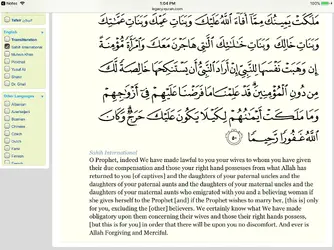 Notes
1:04 PM
100%
legacy.quran.com
Tafsir
English
Transliteration
Sahih International
Muhsin Khan
Pickthall
Yusuf Ali
Shakir
Dr. Ghali
Other Languages
Albanian
Azerbaijani
Bosnian
Chinese
Czech
Dutch
Farsi
Finnish
مَلَكَتْ يَمِينُكَ مِمَّا أَفَاءَ اللَّهُ عَلَيْكَ وَبَنَاتِ عَمِّكَ وَبَنَاتِ عَمَّاتِكَ
وَبَنَاتِ خَالِكَ وَبَنَاتِ خَالَاتِكَ اللَّاتِي هَاجَرْنَ مَعَكَ وَامْرَأَةً مُّؤْمِنَةً
إِن وَهَبَتْ نَفْسَهَا لِلنَّبِيِّ إِنْ أَرَادَ النَّبِيُّ أَن يَسْتَنكِحَهَا خَالِصَةً لَّكَ
مِن دُونِ الْمُؤْمِنِينَ قَدْ عَلِمْنَا مَا فَرَضْنَا عَلَيْهِمْ فِي أَزْوَاجِهِمْ
وَمَا مَلَكَتْ أَيْمَانُهُمْ لِكَيْلَا يَكُونَ عَلَيْكَ حَرَجٌ وَكَانَ
اللَّهُ غَفُورًا رَّحِيمًا ٥٠
Sahih International
O Prophet, indeed We have made lawful to you your wives to whom you have given
their due compensation and those your right hand possesses from what Allah has
returned to you [of captives] and the daughters of your paternal uncles and the
daughters of your paternal aunts and the daughters of your maternal uncles and the
daughters of your maternal aunts who emigrated with you and a believing woman if
she gives herself to the Prophet [and] if the Prophet wishes to marry her, [this is] only
for you, excluding the [other] believers. We certainly know what We have made
obligatory upon them concerning their wives and those their right hands possess,
[but this is for you] in order that there will be upon you no discomfort. And ever is
Allah Forgiving and Merciful.